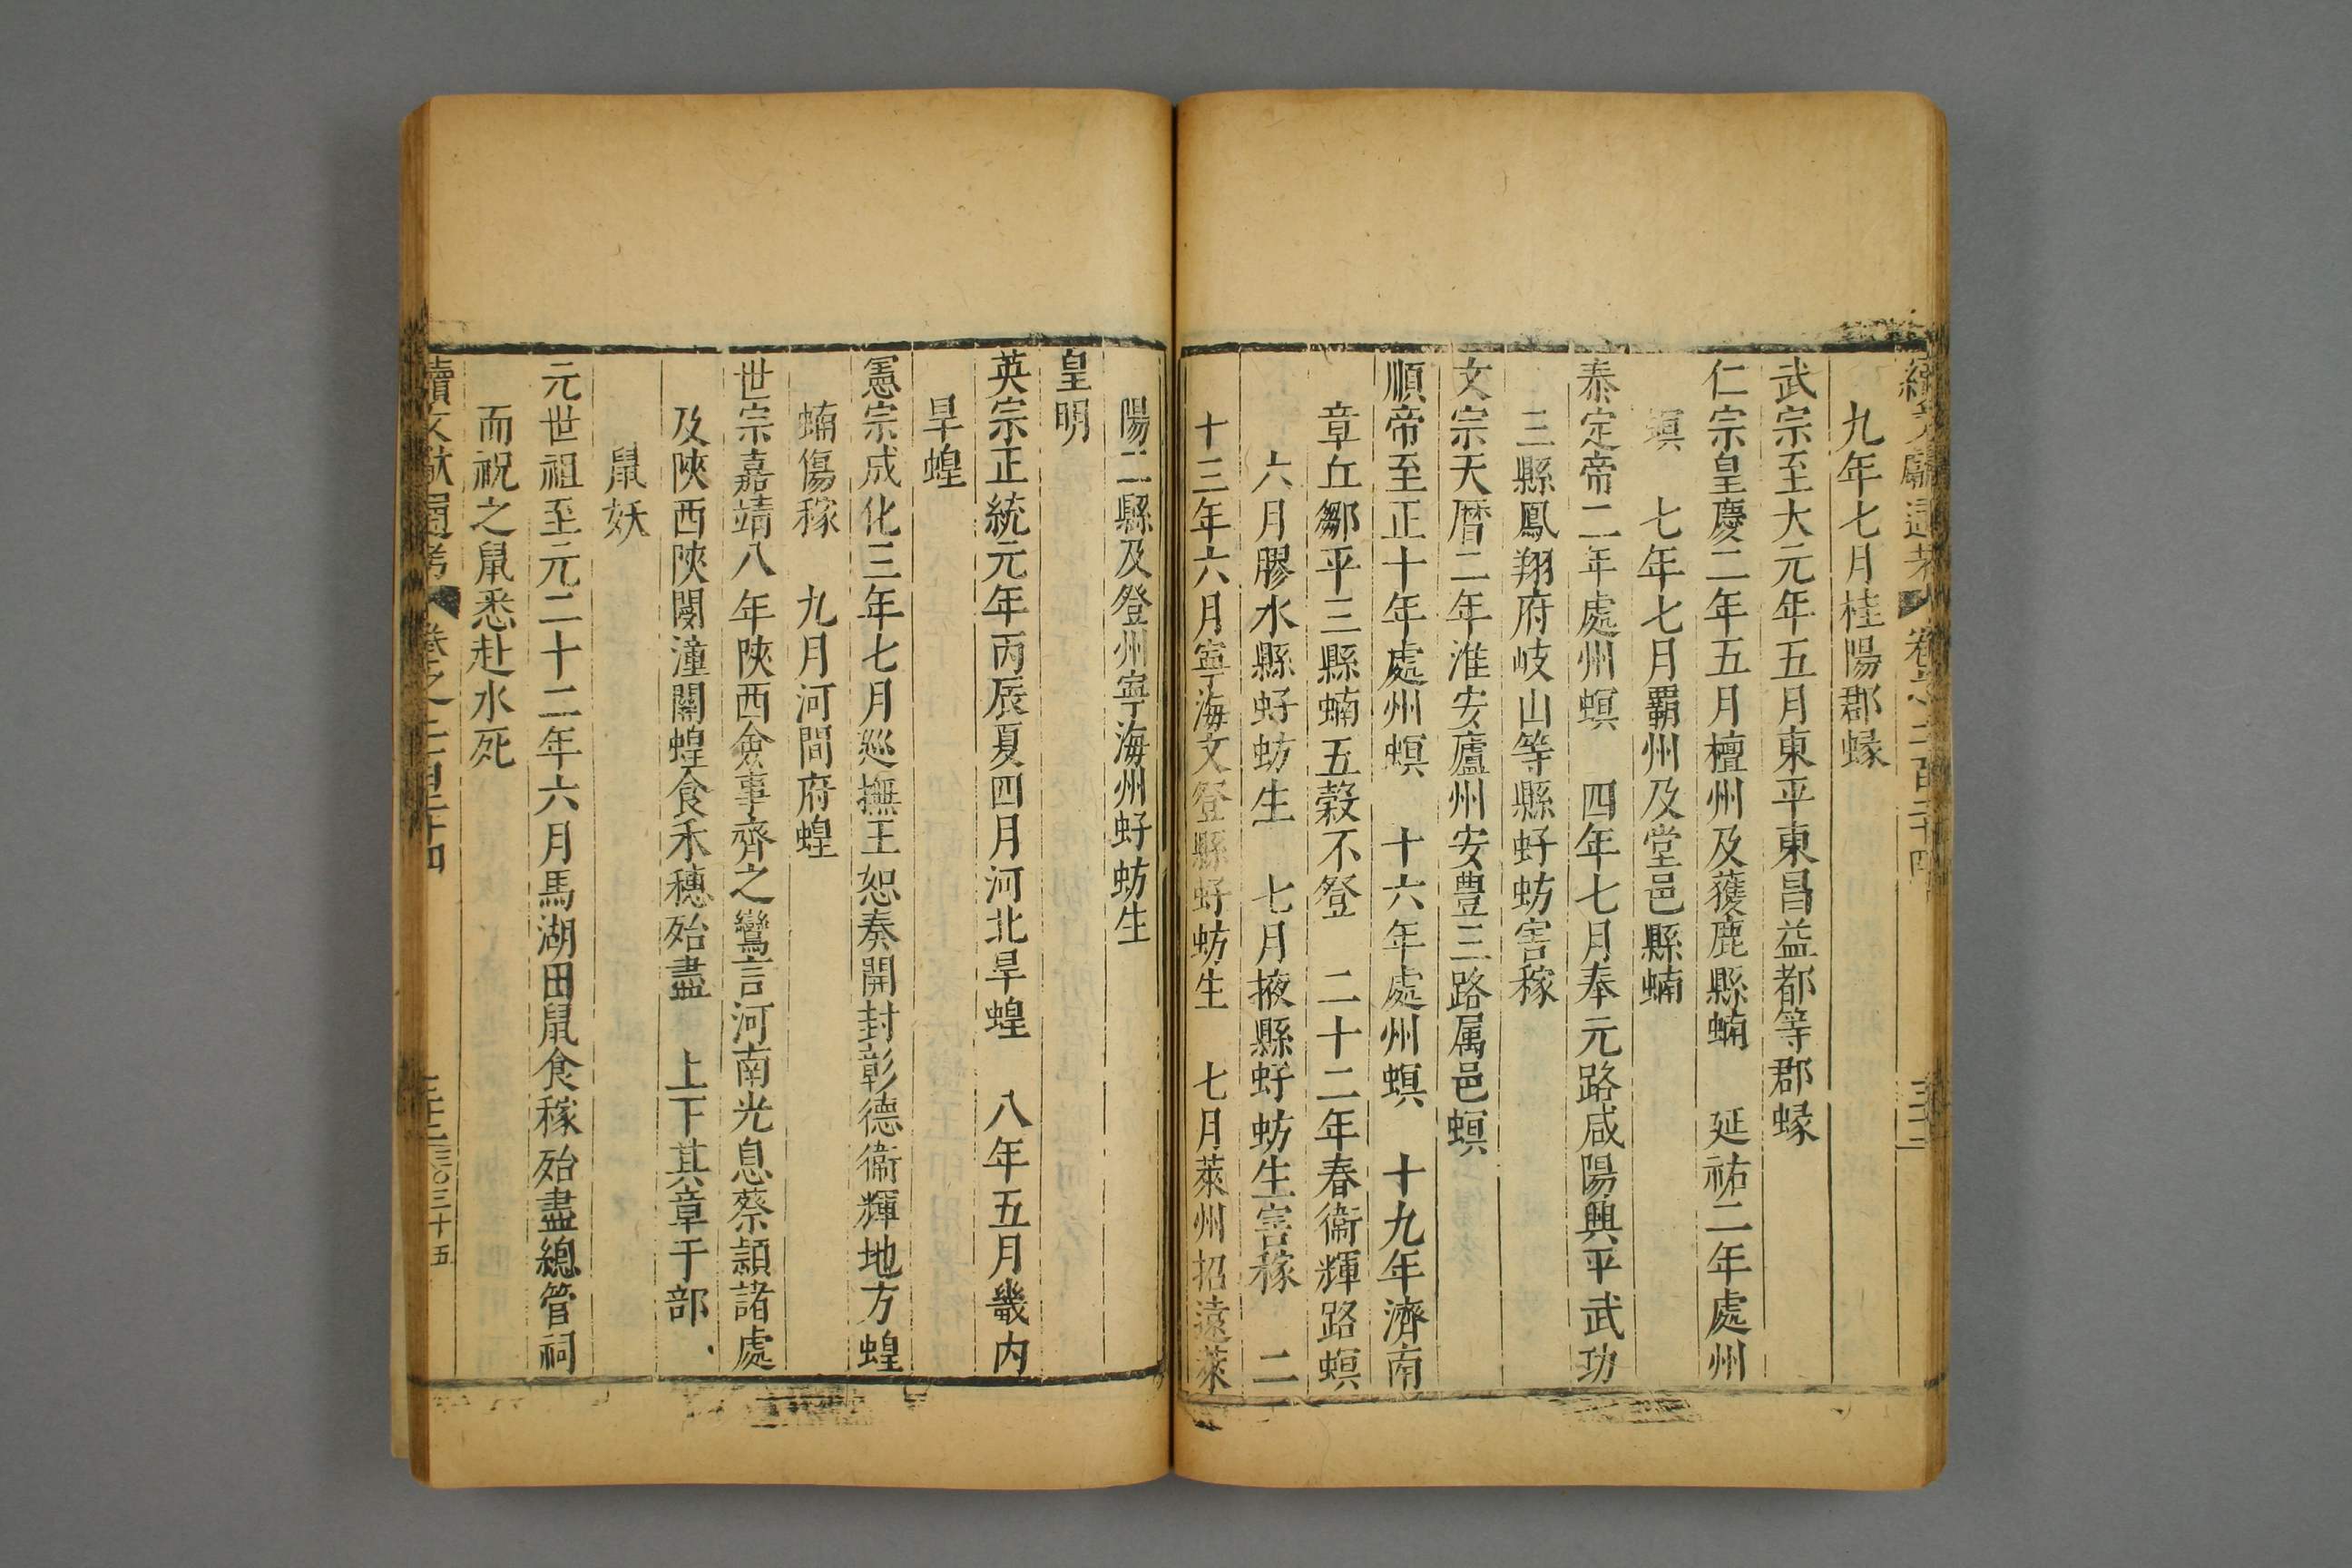 續文獻通考 卷之二百二十四 三十二
九年七月桂陽郡蝝
武宗至大元年五月東平東昌益都等郡蝝
仁宗皇慶二年五月檀州及獲鹿縣蝻 延祐二年處州
螟 七年七月霸州及堂邑縣蝻
泰定帝二年處州螟 四年七月奉元路咸陽興平武功
三縣鳳翔府岐山等縣虸蚄害稼
文宗天曆二年淮安廬州安豊三路属邑螟
順帝至正十年處州螟 十六年處州螟 十九年濟南
章丘鄒平三縣蝻五穀不登 二十二年春衛輝路螟
六月膠水縣虸蚄生 七月掖縣虸蚄生害稼 二
十三年六月寧海文登縣虸蚄生 七月萊州招遠萊
陽二縣及登州寧海州虸蚄生
皇明
英宗正統元年丙辰夏四月河北旱蝗 八年五月畿内
旱蝗
憲宗成化三年七月廵撫王恕奏開封彰德衞輝地方蝗
蝻傷稼 九月河間府蝗
世宗嘉靖八年陝西僉事齊之鸞言河南光息蔡潁諸處
及陝西陝閿潼關蝗食禾穗殆盡 上下其章于部
鼠妖
元世祖至元二十二年六月馬湖田鼠食稼殆盡總管祠
而祝之鼠悉赴水死
續文獻通考 卷之二百二十四 三〇三十五